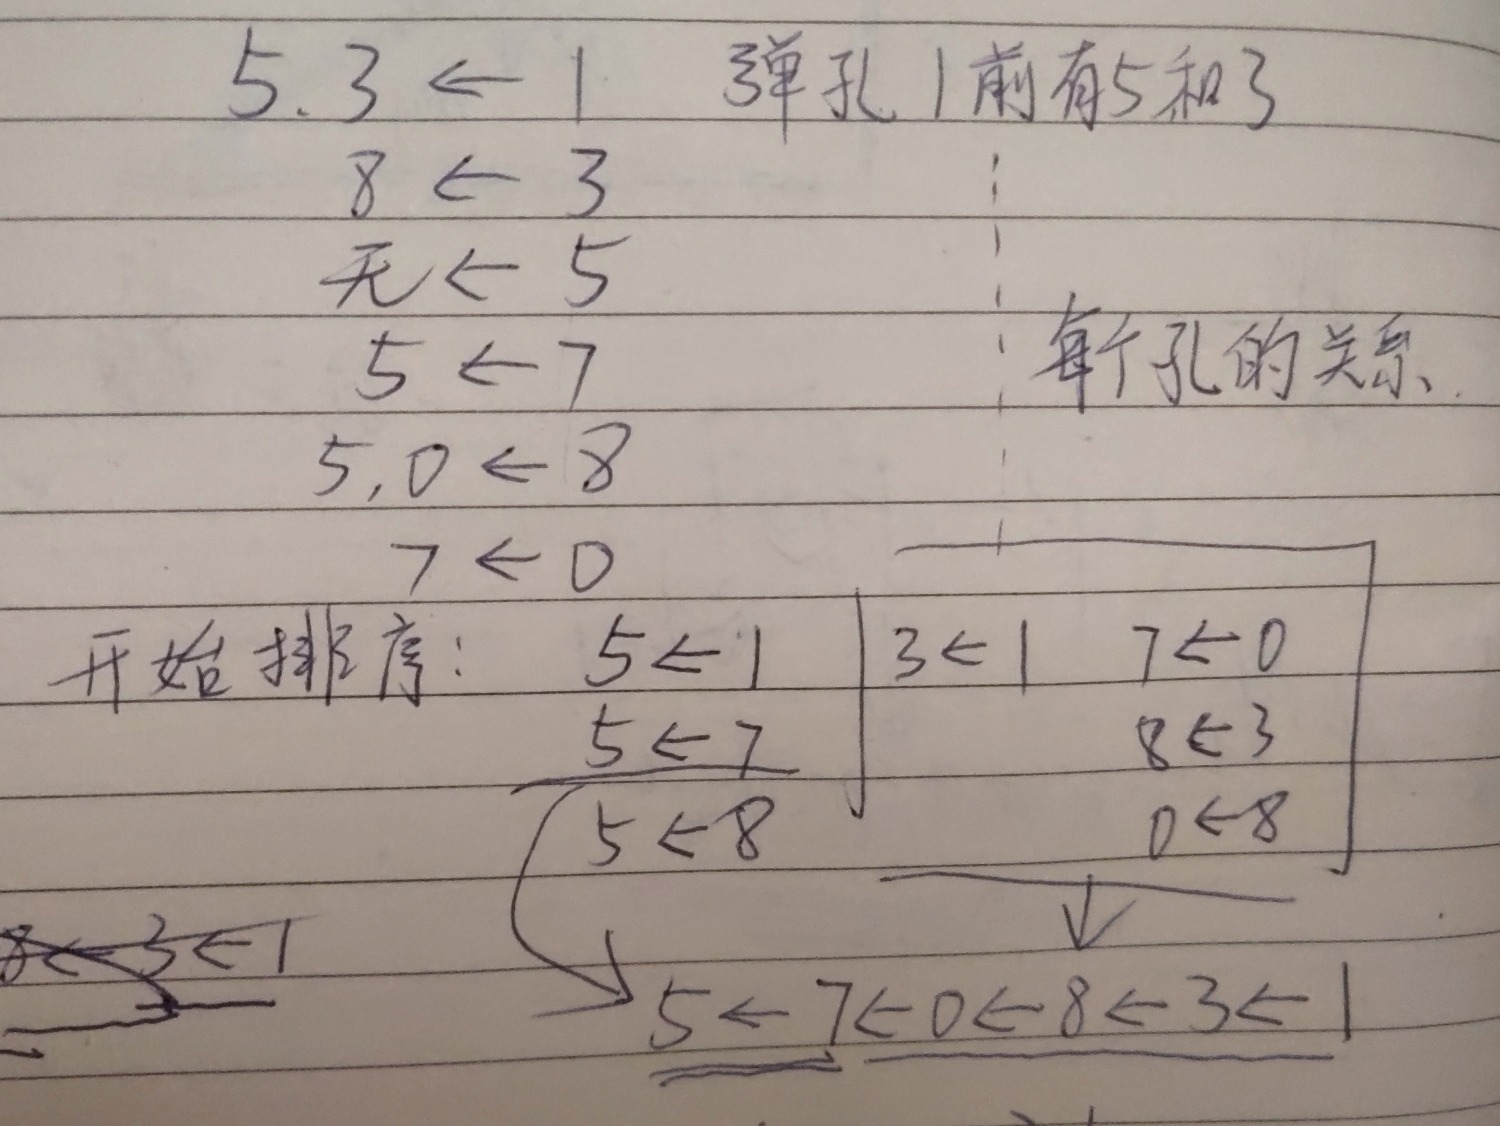 5.3 ← 1 弹孔1前有5和3
8 ← 3
无 ← 5
5 ← 7
每个孔的关系.
5,0 ← 8
7 ← 0
开始排序: 5 ← 1 3 ← 1 7 ← 0
5 ← 7 8 ← 3
5 ← 8 0 ← 8
8 ← 3 ← 1
5 ← 7 ← 0 ← 8 ← 3 ← 1